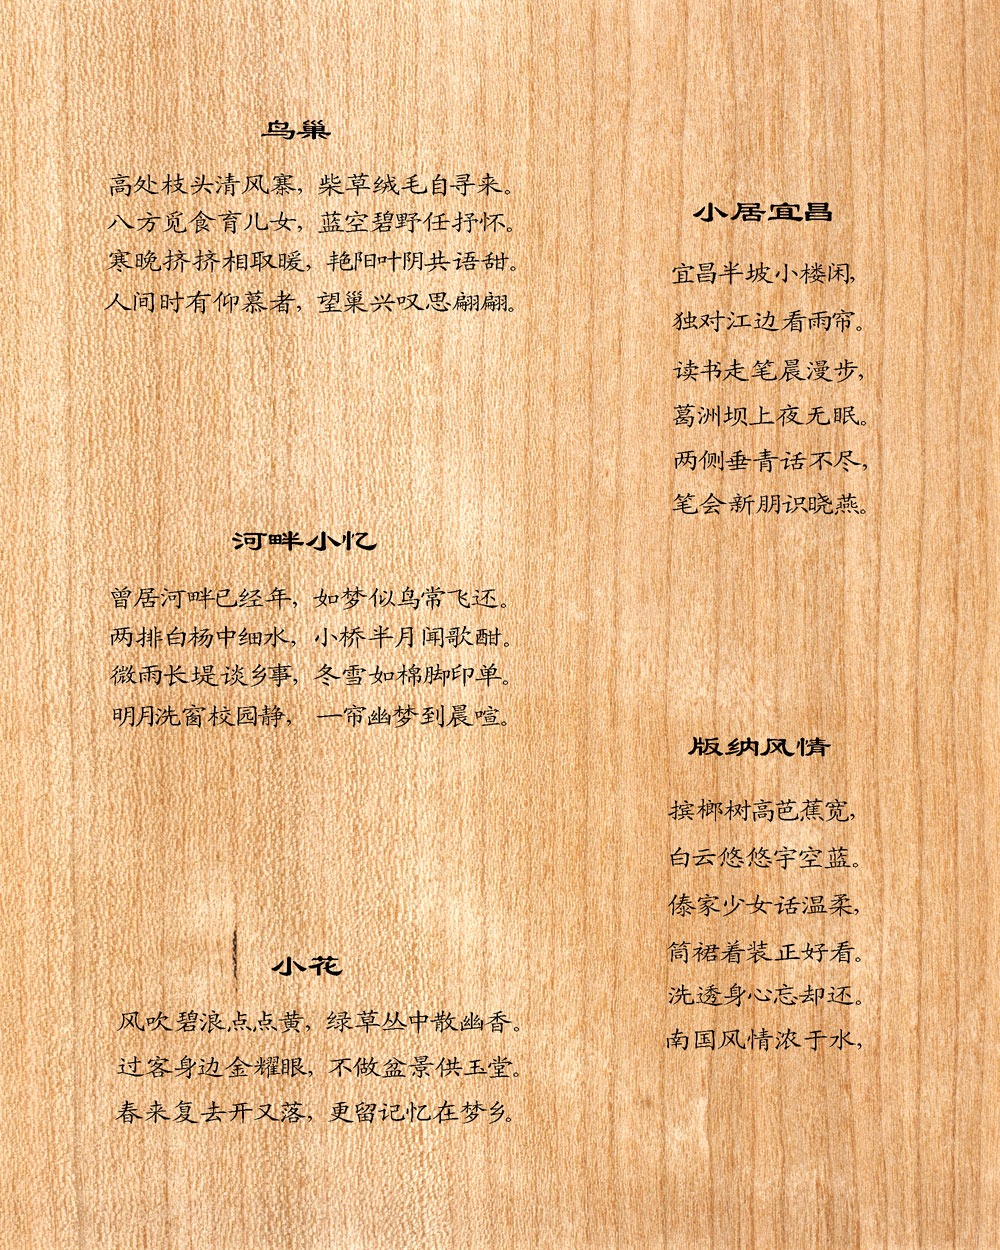 鸟巢
高处枝头清风寨，柴草绒毛自寻来。
八方觅食育儿女，蓝空碧野任抒怀。
寒晚挤挤相取暖，艳阳叶阴共语甜。
人间时有仰慕者，望巢兴叹思翩翩。
河畔小忆
曾居河畔已经年，如梦似鸟常飞还。
两排白杨中细水，小桥半月闻歌酣。
微雨长堤谈乡事，冬雪如棉脚印单。
明月洗窗校园静，一帘幽梦到晨喧。
小花
风吹碧浪点点黄，绿草丛中散幽香。
过客身边金耀眼，不做盆景供玉堂。
春来复去开又落，更留记忆在梦乡。
小居宜昌
宜昌半坡小楼闲，
独对江边看雨帘。
读书走笔晨漫步，
葛洲坝上夜无眠。
两侧垂青话不尽，
笔会新朋识晓燕。
版纳风情
摈榔树高芭蕉宽，
白云悠悠宇空蓝。
傣家少女话温柔，
筒裙着装正好看。
洗透身心忘却还。
南国风情浓于水，